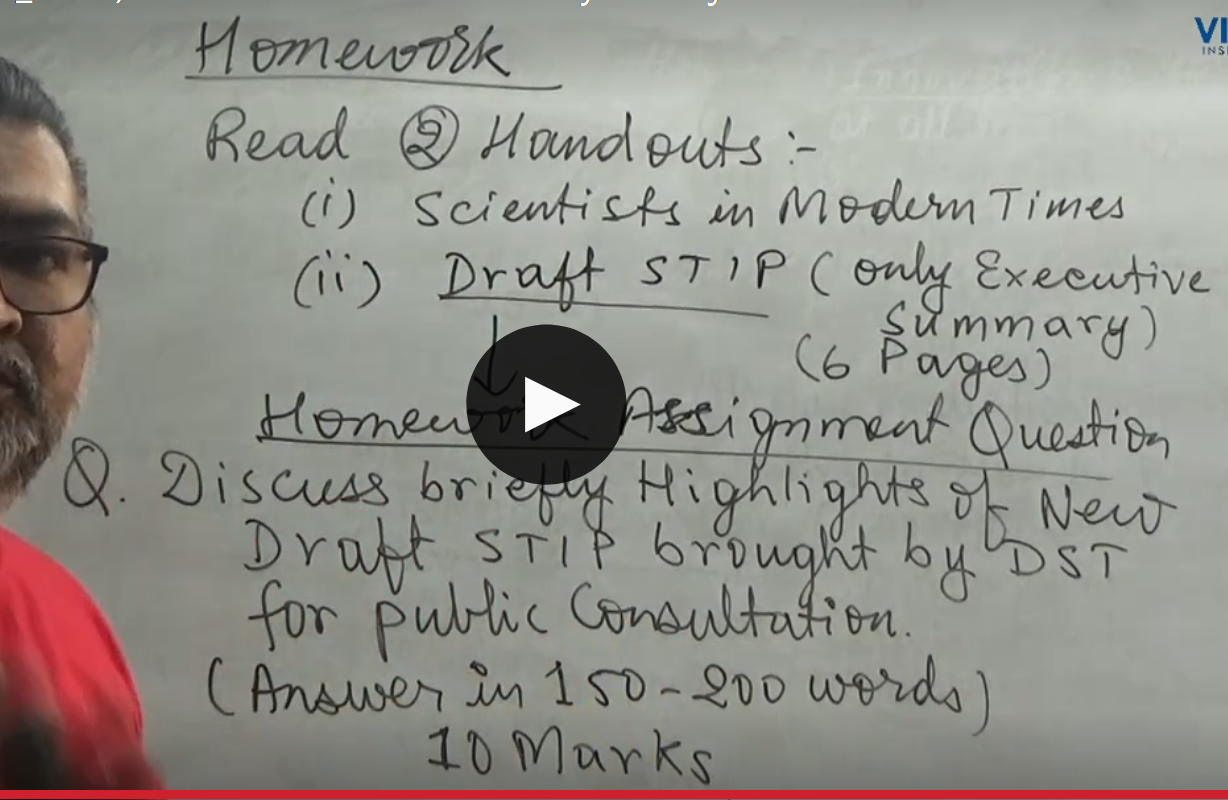 Homework
Read ② Handouts :-
(i) Scientists in Modern Times
(ii) Draft STIP (only Executive
Summary)
(6 Pages)
Homework Assignment Question
Q. Discuss briefly Highlights of New
Draft STIP brought by DST
for public Consultation.
(Answer in 150-200 words)
10 Marks
VI
INS